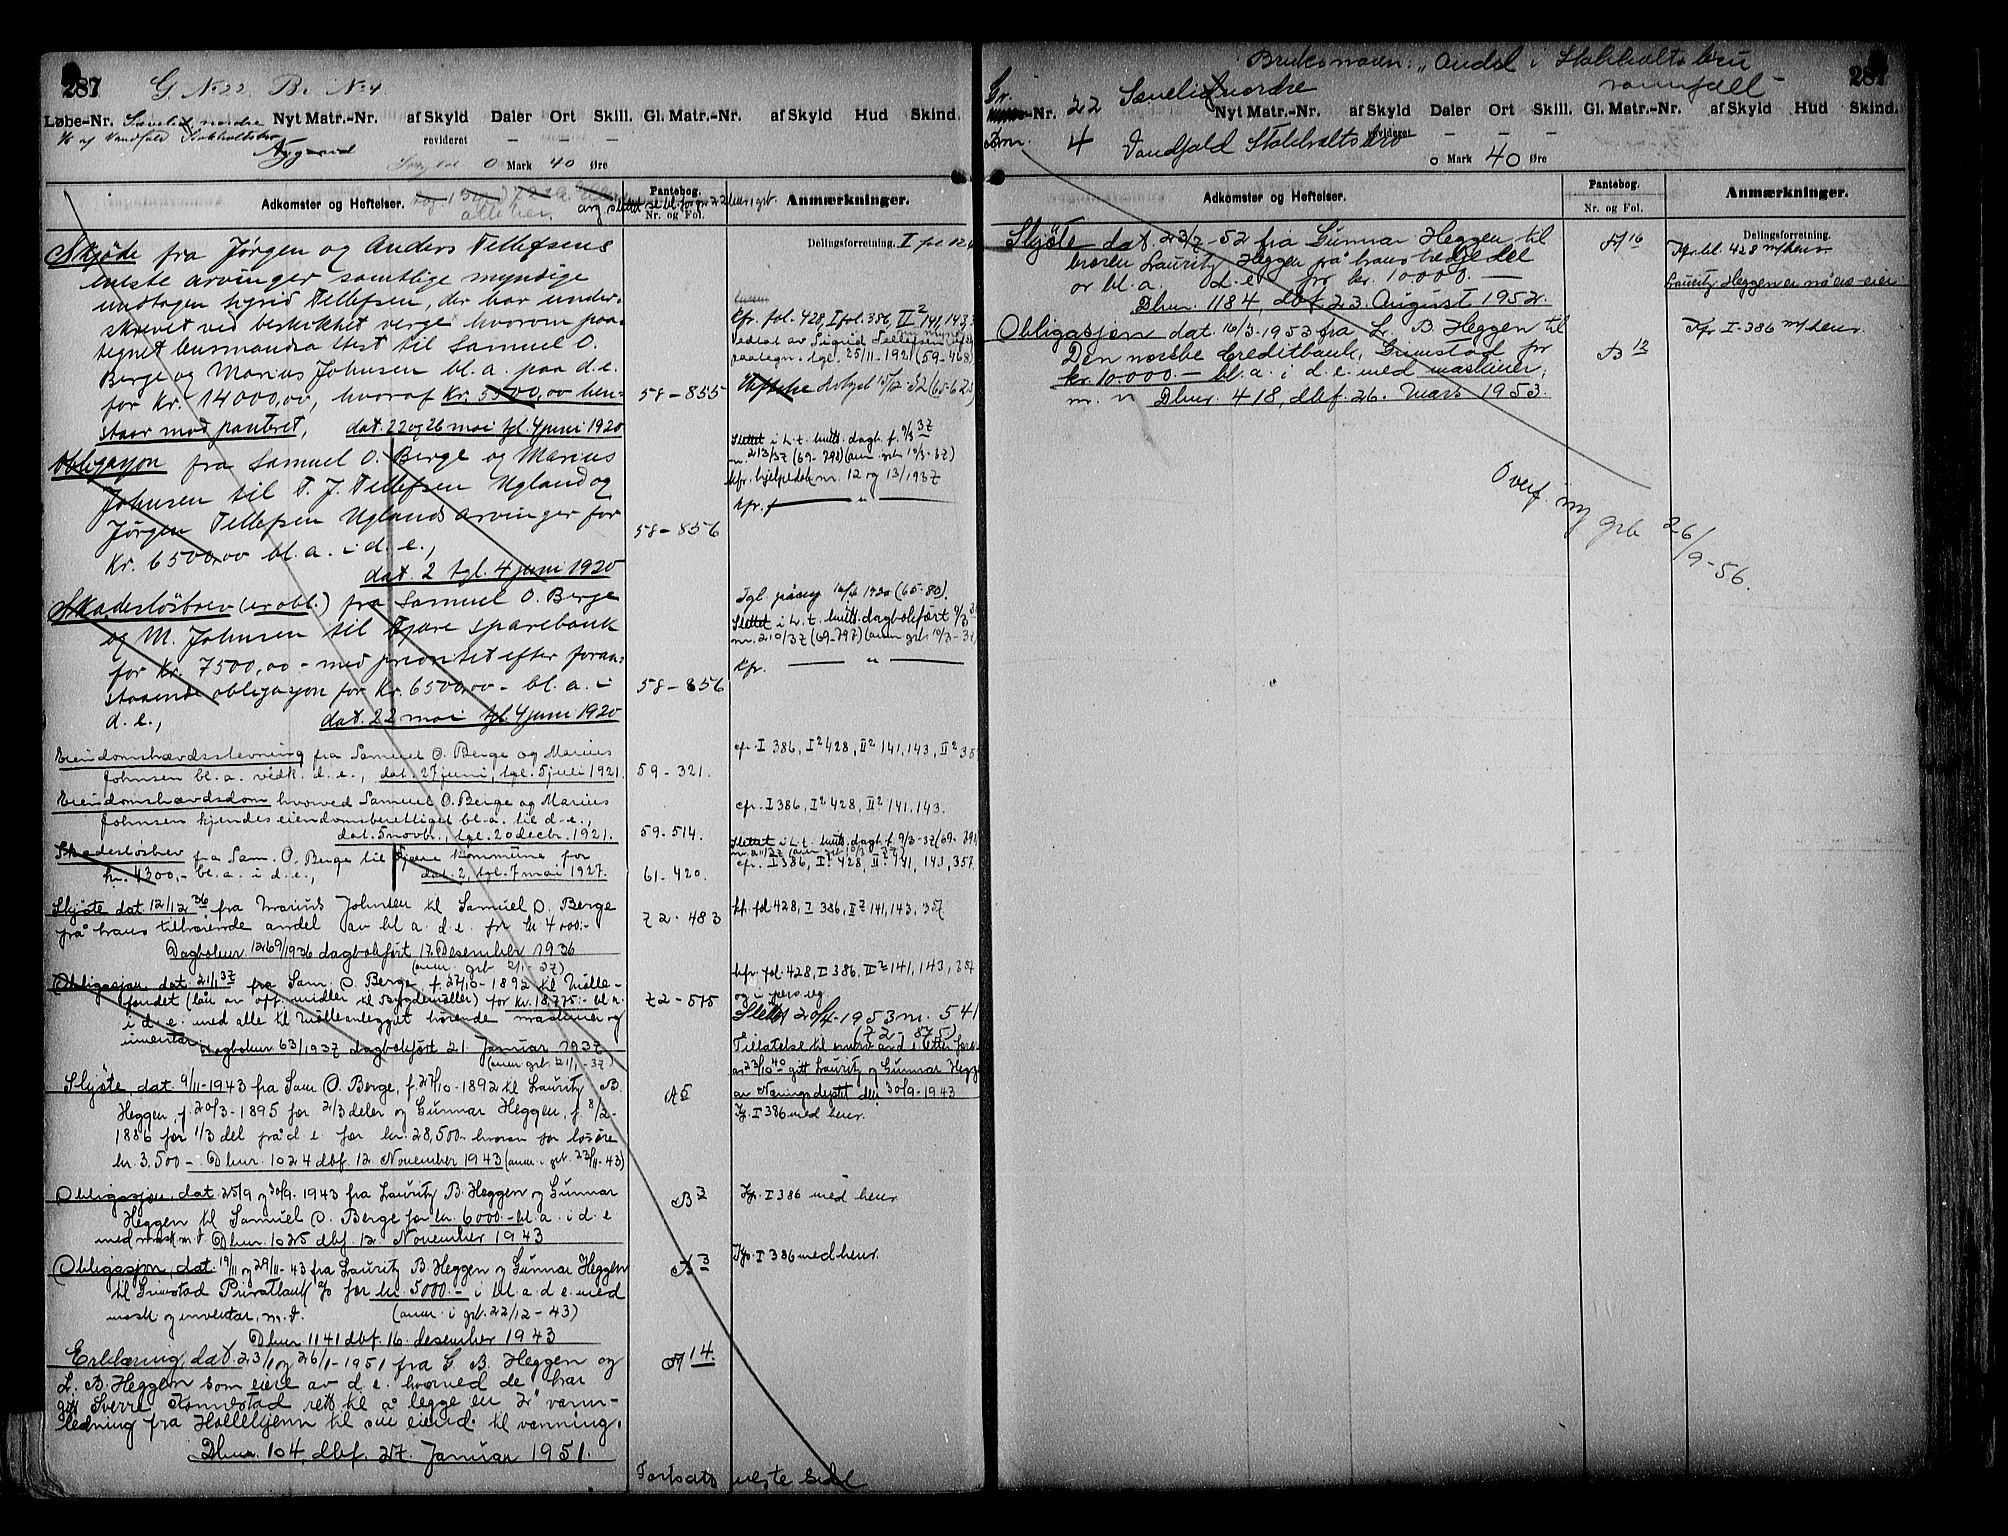 287 G. No 22 B. No 4
Løbe-Nr. nordre Nyt Matr.-Nr. af Skyld Daler Ort Skill. Gl. Matr.-Nr. af Skyld Hud Skind.
af Vandfald Stokholtsbro revideret — — —
0 Mark 40 Øre
Adkomster og Heftelser. Pantebog. Nr. og Fol. Anmærkninger.
Delingsforretning. I fol
Skjøde fra Jørgen og Anders Tellefsens
eneste arvinger samtlige myndige
undtagen Sigrid Tellefsen, der har under-
skrevet ved beskikket verge hvorom paa-
tegnet til Samuel O.
Berge og Marius Johnsen bl.a. paa d.e.
for Kr. 14000,00, hvoraf Kr. 5500,00 hen-
staar mod panteret, dat. 22 og 26 mai tgl. 4 juni 1920
58-855
kfr. fol. 428, I fol. 386, II² 141, 143,
Vedtat av Sigrid Tellefsen
paategn. tgl. 25/11-1921 (59-468)
Obligasjon fra Samuel O. Berge og Marius
Johnsen til T. J. Tellefsen Ugland og
Jørgen Tellefsen Uglands arvinger for
Kr. 6500,00 bl.a. i d.e.,
dat. 2 tgl. 4 juni 1920
58-856
Slettet i h.t. kvitt. dagb.f. 9/3 37
nr. 213/37 (69-798) (anm. grb. 10/3-37)
kfr. hjelpedok nr. 12 og 13/1937
kfr. — " —
Skadesløsbrev (ex obl.) fra Samuel O. Berge
og M. Johnsen til Fjære sparebank
for Kr. 7500,00 - med prioritet efter foran-
staaende obligasjon for Kr. 6500,00 - bl.a. i
d.e., dat. 22 mai tgl. 4 juni 1920
58-856
Slettet i h.t. kvitt. dagbokført 9/3
nr. 210/37 (69-797) (anm. grb. 10/3-37)
kfr. — " —
Eiendomshævdsstevning fra Samuel O. Berge og Marius
Johnsen bl.a. vedk. d.e., dat. 27 juni, tgl. 5 juli 1921.
59-321.
cfr. I 386, I² 428, II² 141, 143, II²
Eiendomshævdsdom hvorved Samuel O. Berge og Marius
Johnsen kjendes eiendomsberettiget bl.a. til d.e.,
dat. 5 novbr., tgl. 20 decbr. 1921.
59-514.
cfr. I 386, I² 428, II² 141, 143.
Skadesløsbrev fra Sam. O. Berge til Fjære kommune for
kr. 4300,- bl.a. i d.e., dat. 2, tgl. 7 mai 1927.
61-420.
Slettet i h.t. kvitt. dagb.f. 9/3-37
cfr. I 386, I² 428, II² 141, 143, 358
Skjøte dat 12/12 36 fra Marius Johnsen til Samuel O. Berge
på hans tilhørende andel av bl a. d.e. for kr 4000:-
Dagboknr 1269/1936 dagbokført 17. Desember 1936
(anm. grb 2/1-37)
72-483
kfr. fol 428, I 386, II² 141, 143, 357
Obligasjon dat. 21/1 37 fra Sam. O Berge f. 27/10-1892 til Mølle-
fondet (lån av off. midler til Bygdemøller) for kr. 18,775:- bl a.
i d.e. med alle til mølleanlegget hørende maskiner og
inventar. Dagboknr 63/1937 dagbokført 21. Januar 1937
(anm grb. 21/1-37)
72-515
kfr. fol. 428, I 386. II² 141, 143, 357
Slettet 20/4-1953 nr. 541
(72-575)
Skjøte dat 9/11-1943 fra Sam O. Berge, f. 27/10-1892 til Lauritz B.
Heggen f. 20/3-1895 for 2/3 deler og Gunnar Heggen, f. 8/2-
1886 for 1/3 del på d e for kr. 28,500.- hvorav for løsøre
kr. 3,500 -. Dbnr. 1024 dbf. 12 November 1943 (anm i grb. 23/11-43)
A 5
Tillatelse til
av 23/10-40 gitt Lauritz og Gunnar Hegge
av Næringsdep. den 30/9-1943
Kfr. I 386 med henv.
Obligasjon, dat. 25/9 og 30/9-1943 fra Lauritz B. Heggen og Gunnar
Heggen til Samuel O. Berge for kr. 6000.- bl.a. i d.e
med mask m.v. Dbnr. 1025 dbf. 12. November 1943
B 3
Kfr. I 386 med henv
Obligasjon, dat. 19/11 og 29/11-43 fra Lauritz B. Heggen og Gunnar Heggen
til Grimstad Privatbank A/S for kr. 5000.- i bl a d.e. med
mask og inventar, m.v. (anm. i grb. 22/12-43)
Dbnr 1141 dbf. 16. desember 1943
B 3
Kfr. I 386 med henv.
Erklæring, dat. 23/1 og 26/1-1951 fra G. B. Heggen og
L. B. Heggen som eiere av d.e. hvorved de har
gitt Sverre Tønnestad rett til å legge en 2" vann-
ledning fra Hollekjenn til sin eiend. til vanning.
Dbnr. 104, dbf. 27. Januar 1951.
A 14.
Fortsatt neste side
Bruksnavn: "Andel i Stokholtsbru
vannfall"
287
Gr.-Nr. 22 nordre Nyt Matr.-Nr. af Skyld Daler Ort Skill. Gl. Matr.-Nr. af Skyld Hud Skind.
Brn. 4 Vandfald Stokholtsbro revideret — — —
0 Mark 40 Øre
Adkomster og Heftelser. Pantebog. Nr. og Fol. Anmærkninger.
Delingsforretning.
Skjøte dat 23/2-52 fra Gunnar Heggen til
broren Lauritz Heggen på hans tredjedel
av bl.a. d.e for kr. 10000.-
Dbnr. 1184, dbf. 23. August 1952.
A 16
Kfr. bl. 428 m/henv.
Lauritz Heggen er nå ene-eier
Obligasjon dat. 16/3-1953 fra L. B. Heggen til
Den norske Creditbank, Grimstad for
kr. 10.000.- bl.a. i d.e. med maskiner,
m.v. Dbnr. 418, dbf. 26. mars 1953.
B 13
Kfr. I-386 m/henv.
Overf. ny grb 26/9-56.